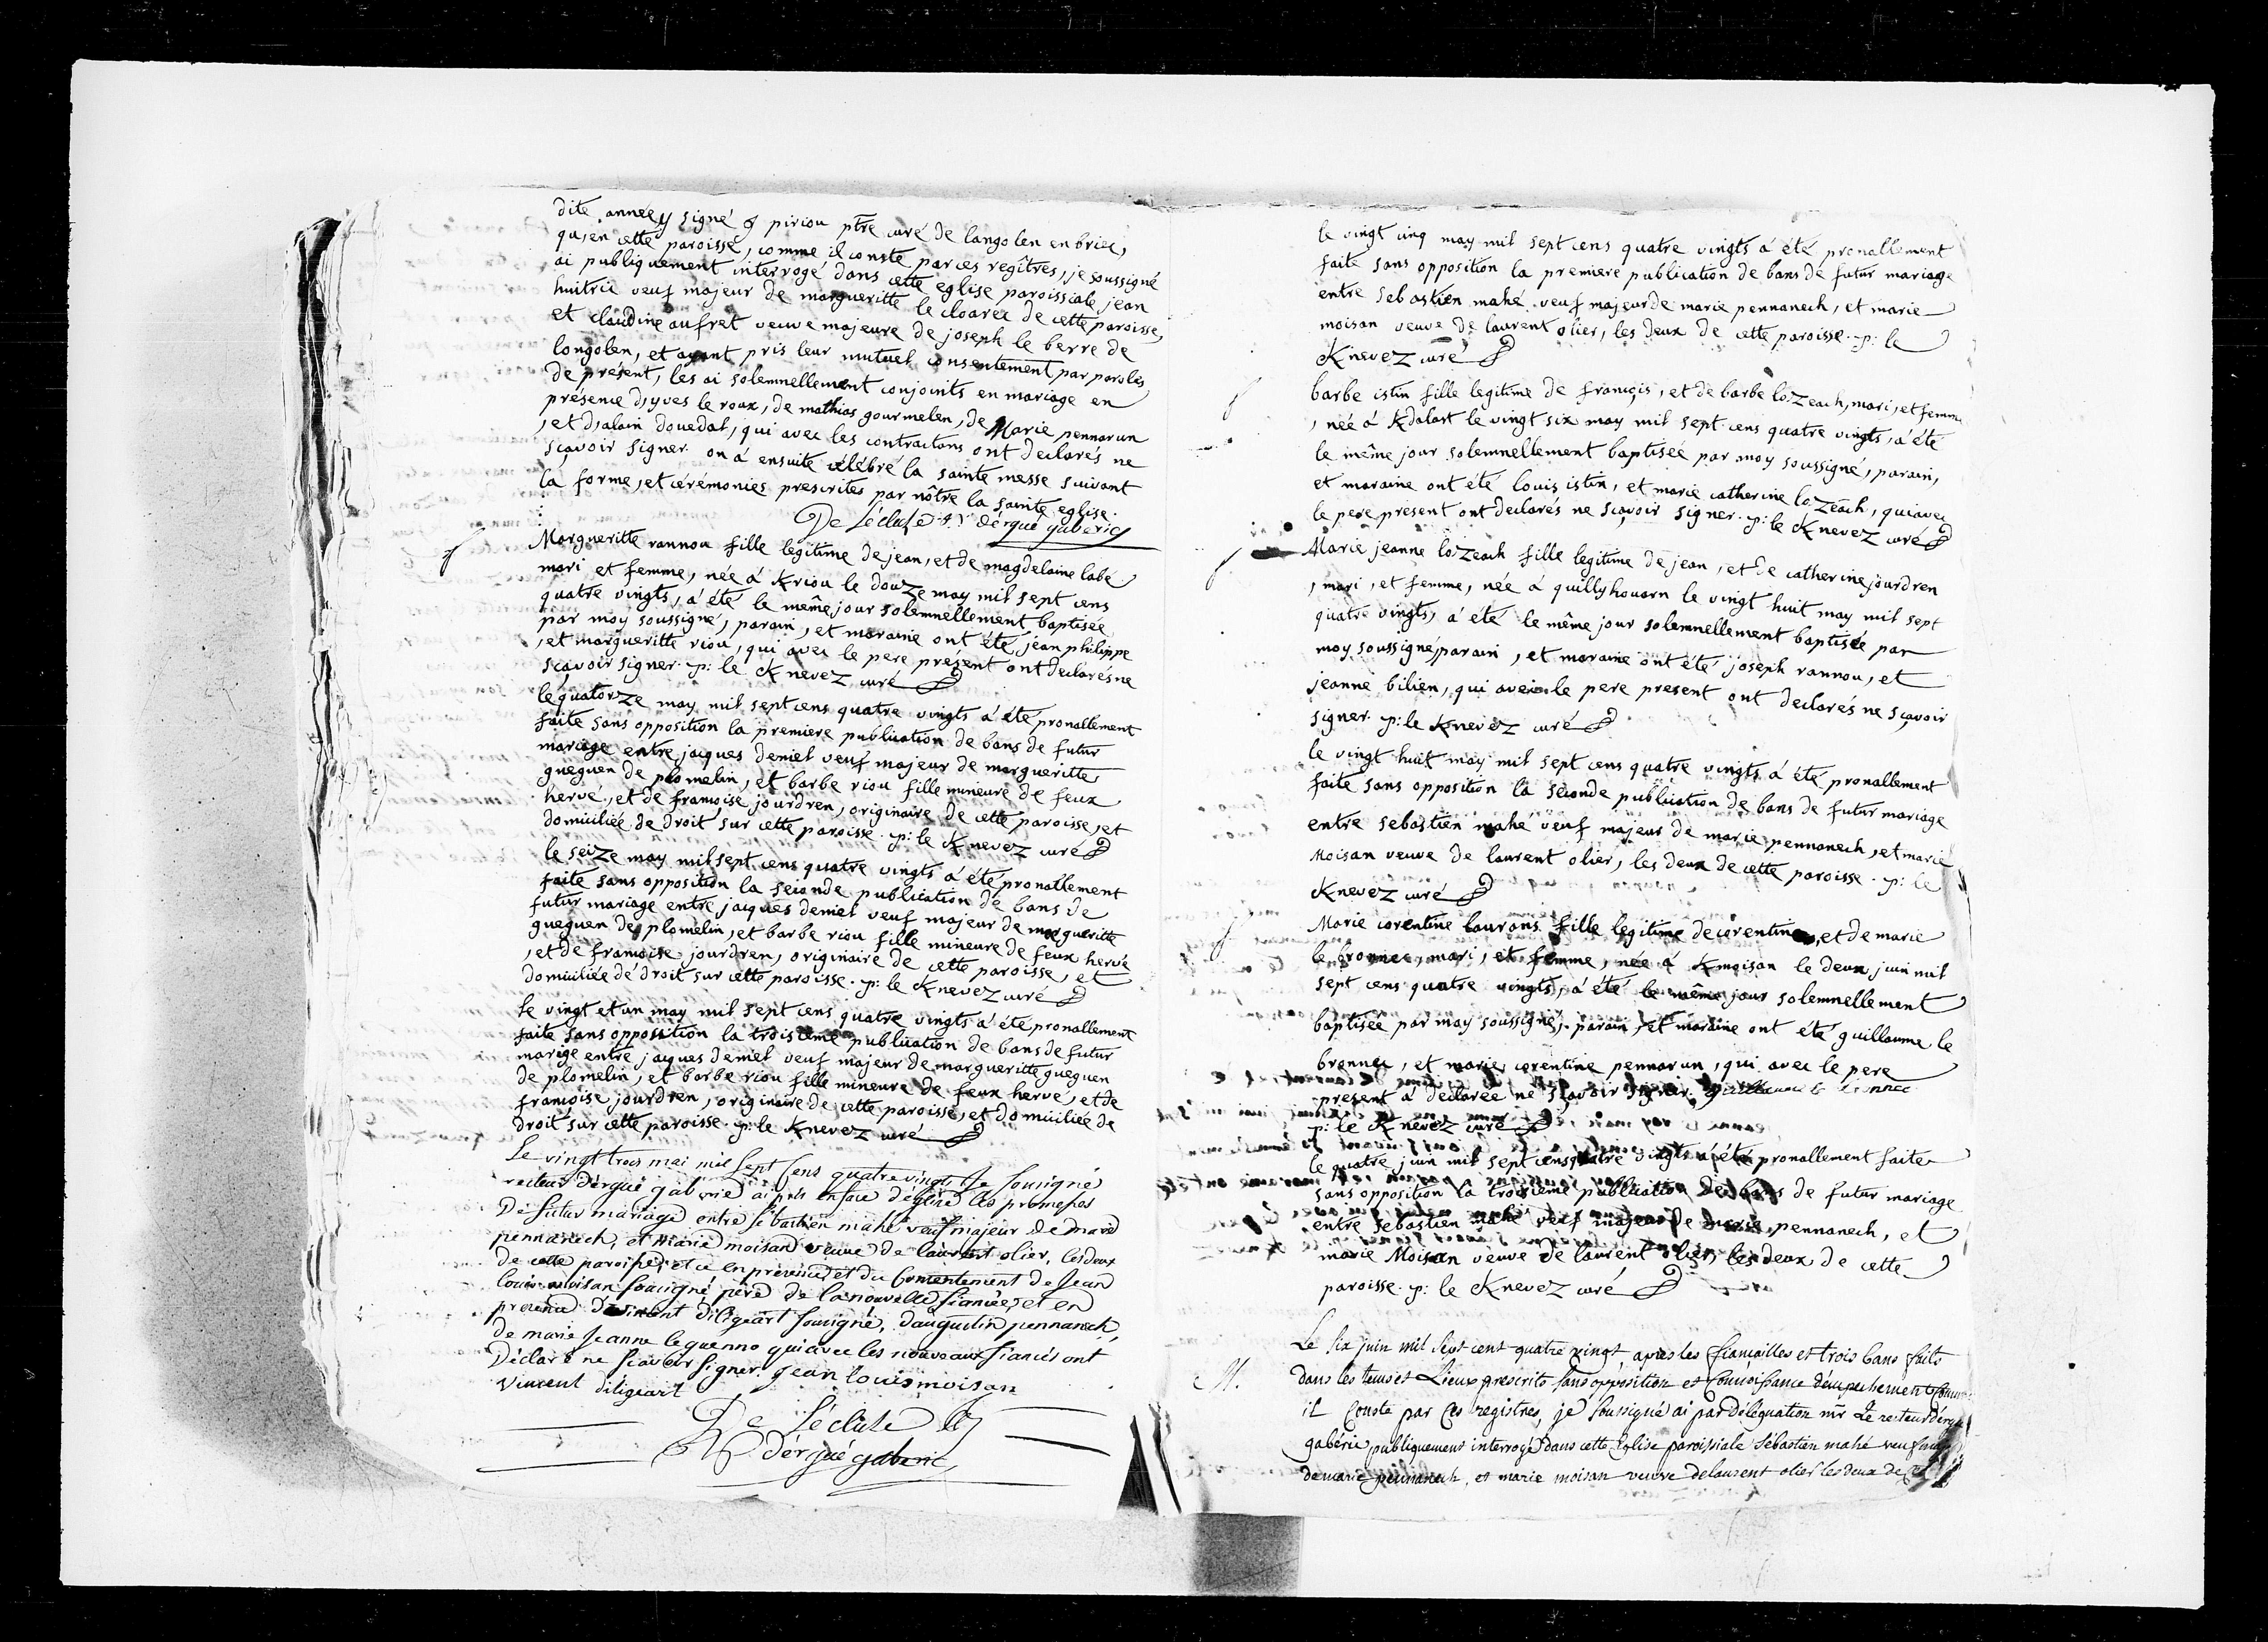 dite année, signé g piriou ptre curé de langolen en briec,
qu,en cette paroisse, comme il conste par ces regîtres, je soussigné
ai publiquement interrogé dans cette eglise paroissiale jean
huitric veuf majeur de margueritte le cloarec de cette paroisse,
et claudine aufret veuve majeure de joseph le berre de
langolen, et ayant pris leur mutuel consentement par paroles
de présent, les ai solemnellement conjoints en mariage en
présence d,yves le roux, de mathias gourmelen, de Marie pennarun
, et d,alain douedal, qui avec les contractans ont declarés ne
sçavoir signer. on á ensuite célébré la sainte messe suivant
la forme, et cérémonies prescrites par nôtre la sainte eglise.
De Lécluse Rr dérgué gaberic
Margueritte rannou fille legitime de jean, et de magdelaine labé
mari et femme, née á Kriou le douze may mil sept cens
quatre vingts, á été le même jour solemnellement baptisée
par moy soussigné, parain, et maraine ont été jean philippe
, et margueritte riou, qui avec le pere présent ont declarés ne
sçavoir signer. p: le Knevez curé
le quatorze may mil sept cens quatre vingts á été pronallement
faite sans opposition la premiere publication de bans de futur
mariage entre jacques deniel veuf majeur de margueritte
gueguen de plomelin, et barbe riou fille mineure de feux
hervé, et de francoise jourdren, originaire de cette paroisse, et
domiciliée de droit sur cette paroisse. p: le Knevez curé
le seize may mil sept cens quatre vingts á été pronallement
faite sans opposition la seconde publication de bans de
futur mariage entre jacques deniel veuf majeur de margueritte
gueguen de plomelin, et barbe riou fille mineure de feux hervé
, et de francoise jourdren, originaire de cette paroisse, et
domiciliée de droit sur cette paroisse. p: le Knevez curé
le vingt et un may mil sept cens quatre vingts á été pronallement
faite sans opposition la troisieme publication de bans de futur
marige entre jacques deniel veuf majeur de margueritte gueguen
de plomelin, et barbe riou fille mineure de feux hervé, et de
francoise jourdren, originaire de cette paroisse, et domiciliée de
droit sur cette paroisse. p: le Knevez curé
Le vingt trois mai mil sept cens quatre vingts Je sousigné
recteur dérgué gaberic ai pris en face d'église les promesses
De futur mariage entre sébastien mahé veuf majeur de marie
pennanech, et Marie moisan veuve de laurent olier, les deux
de cette paroisse, et ce en présence et du Consentement de Jean
louis moisan sousigné pere de la nouvelle fiancée, et en
presence de vincent diligeart sousigné, d'augustin pennanech,
de marie Jeanne le guenno qui avec les nouveaux fiancés ont
Déclaré ne sçavoir signer. Jean louis moisan
Vincent diligeart
De Lécluse
Rr dérgué gaberic
le vingt cinq may mil sept cens quatre vingts á été pronallement
faite sans opposition la premiere publication de bans de futur mariage
entre sebastien mahé veuf majeur de marie pennanech, et marie
moisan veuve de laurent olier, les deux de cette paroisse. p: le
Knevez curé
barbe istin fille legitime de françois, et de barbe lozeach, mari, et femme
, née á Kdalast le vingt six may mil sept cens quatre vingts, á été
le même jour solemnellement baptisée par moy soussigné, parain,
et maraine ont été louis istin, et marie catherine lozeach, qui avec
le pere présent ont declarés ne sçavoir signer. p: le Knevez curé
Marie jeanne lozeach fille legitime de jean, et de catherine jourdren
, mari, et femme, née á quillyhouarn le vingt huit may mil sept
quatre vingts, á été le même jour solemnellement baptisée par
moy soussigné, parain, et maraine ont été joseph rannou, et
jeanne bilien, qui avec le pere present ont declarés ne sçavoir
signer. p: le Knevez curé
le vingt huit may mil sept cens quatre vingts á été pronallement
faite sans opposition la seconde publication de bans de futur mariage
entre sebastien mahé veuf majeur de marie pennanech, et marie
Moisan veuve de laurent olier, les deux de cette paroisse. p: le
Knevez curé
Marie corentine laurans fille legitime de corentin, et de marie
le bronnec, mari, et femme, née á Kmoisan le deux juin mil
sept cens quatre vingts, á été le même jour solemnellement
baptisée par moy soussigné, parain, et maraine ont été guillaume le
bronnec, et marie corentine pennarun, qui avec le pere
present á declarée ne sçavoir signer. guillaume le bronnec
p: le Knevez curé
le quatre juin mil sept cens quatre vingts á été pronallement faite
sans opposition la troisieme publication de bans de futur mariage
entre sebastien mahé veuf majeur de marie pennanech, et
marie Moisan veuve de laurent olier, les deux de cette
paroisse. p: le Knevez curé
Le six juin mil sept cent quatre vingt, après les fiançailles et trois bans faits
M. dans les tems et Lieux prescrits sans opposition et Connoissance d'empechement Comme
il Conste par Ces registres, je soussigné ai par Déléguation mr Le recteur dérgué
gabéric publiquement interrogé dans cette Eglise paroissiale Sébastien mahé veuf
de marie pennanech, et marie moisan veuve de laurent olier les deux de